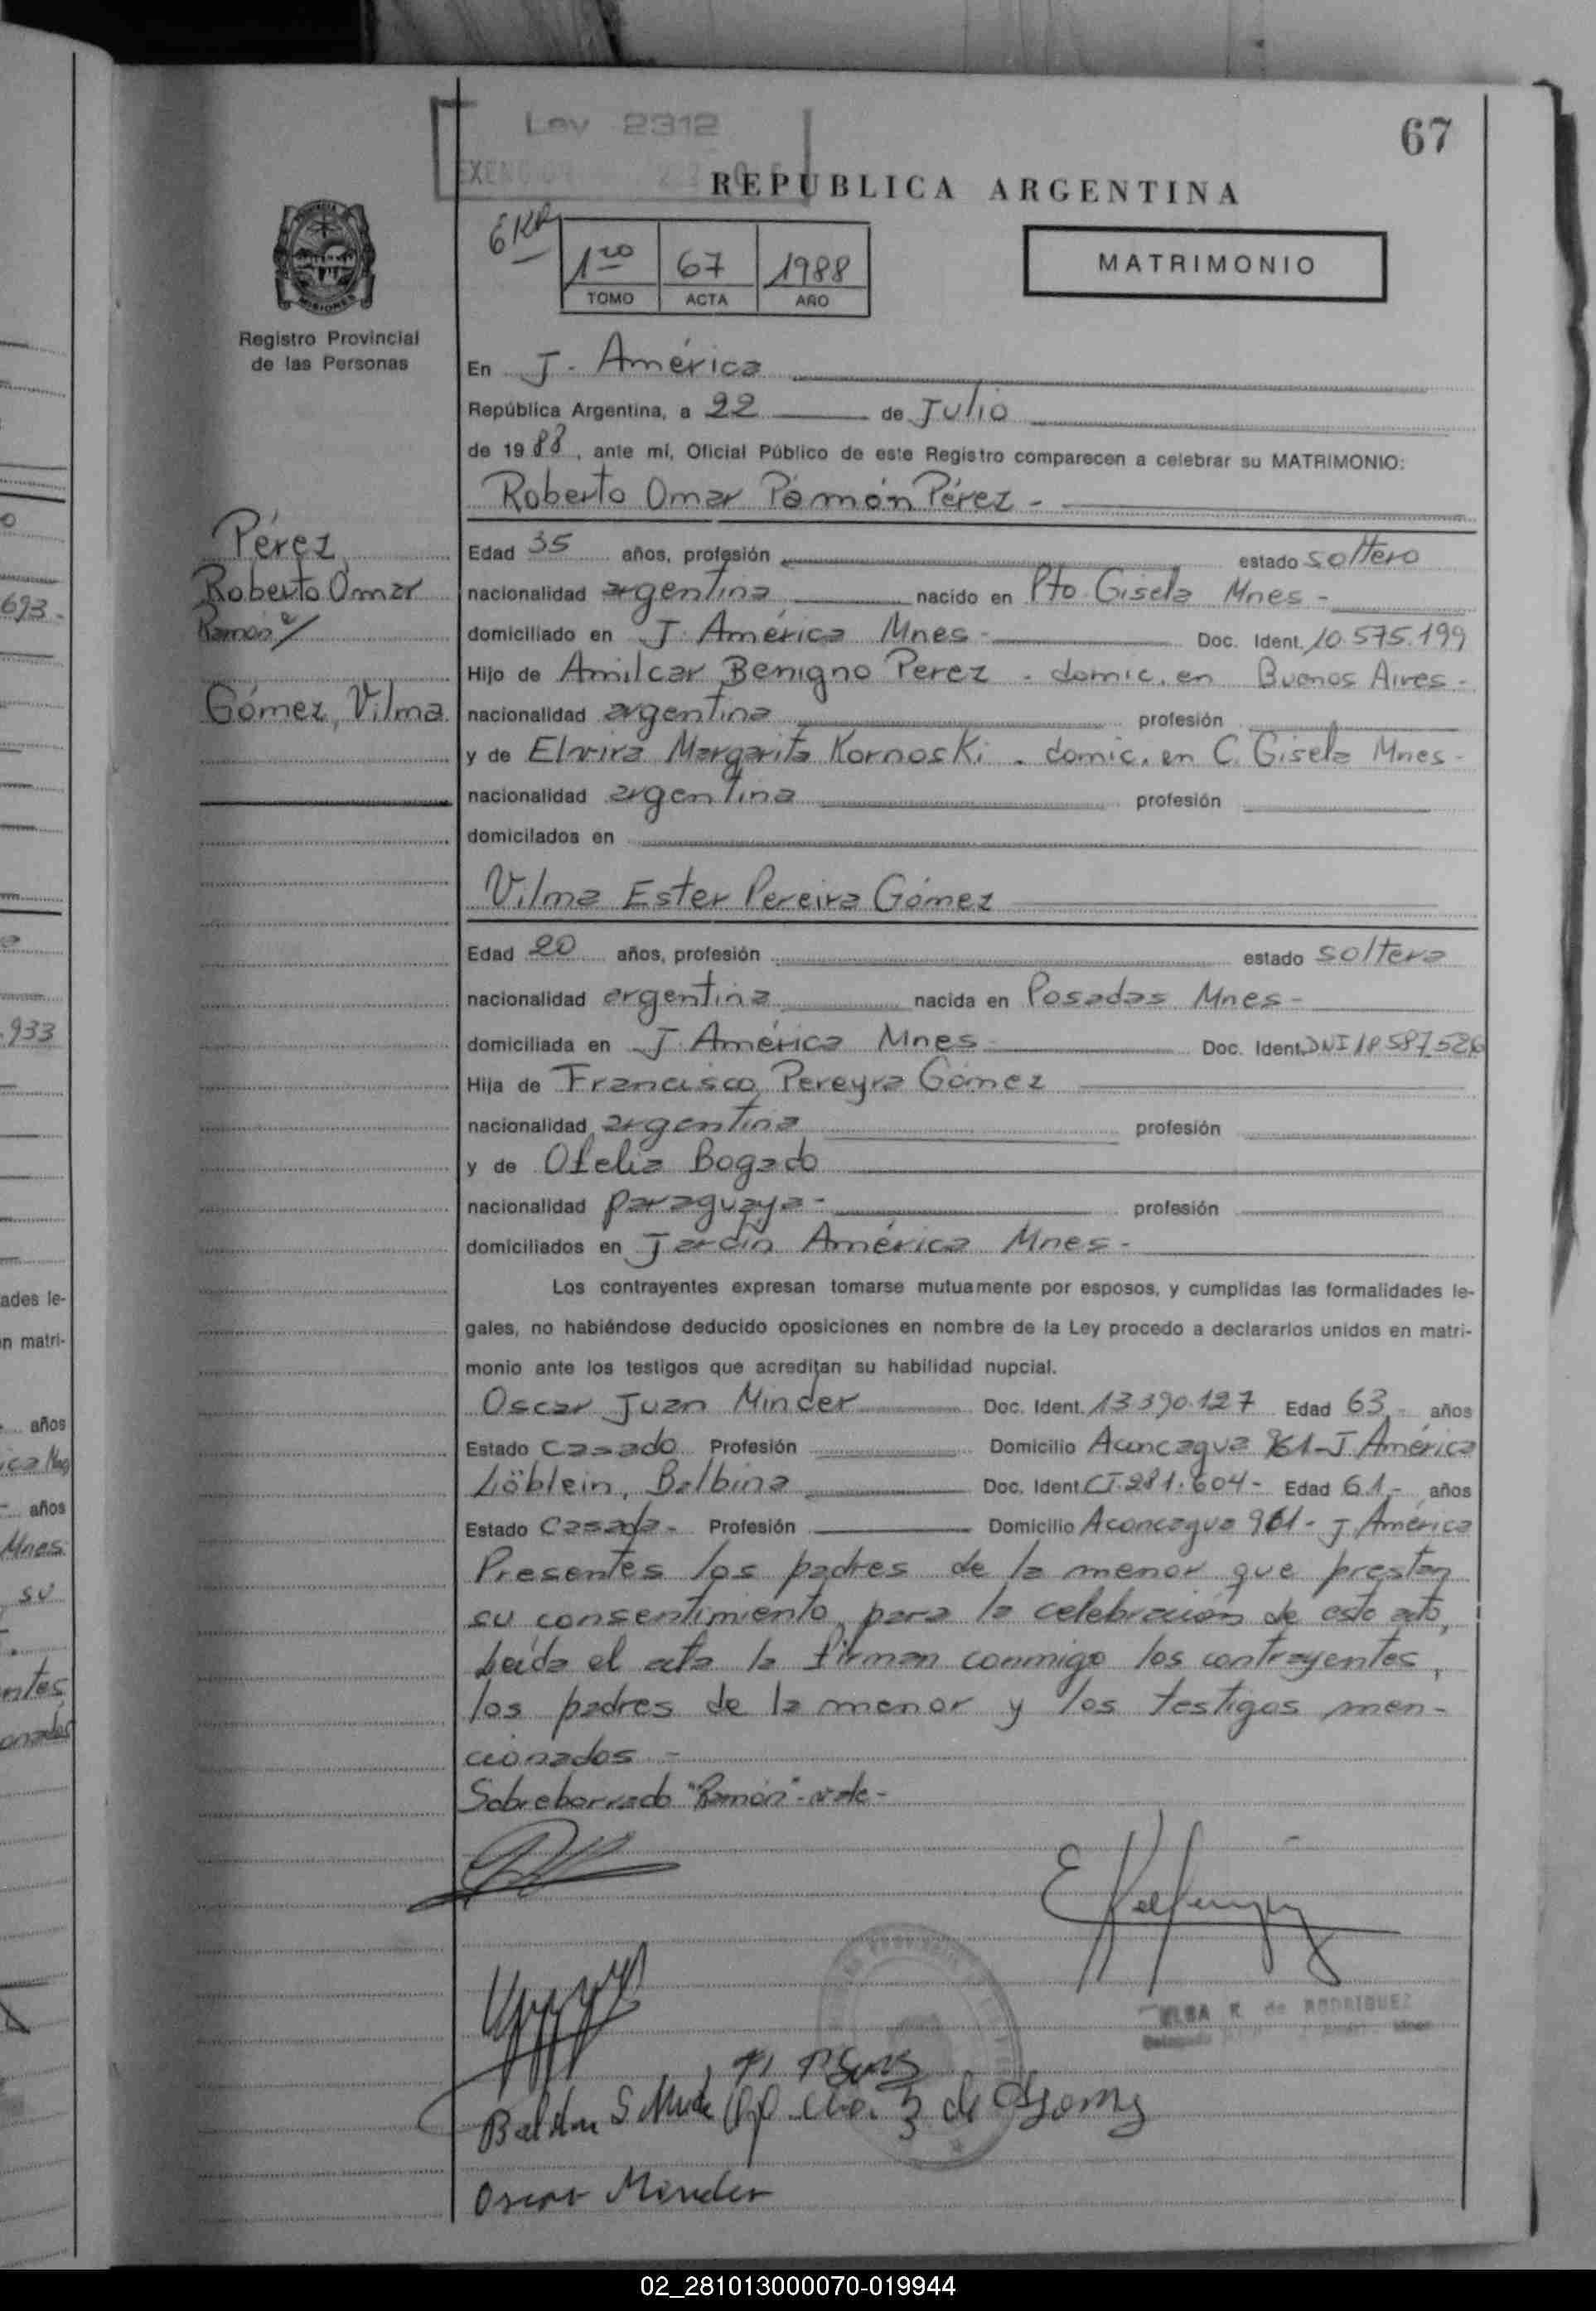 Ley 2312
67
REPUBLICA ARGENTINA
1ro 67 1988
TOMO ACTA AÑO
MATRIMONIO
Registro Provincial
de las Personas
En J. América
República Argentina, a 22 de Julio
de 1988, ante mí, Oficial Público de este Registro comparecen a celebrar su MATRIMONIO:
Roberto Omar Ramón Pérez -
Pérez,
Roberto Omar
Ramón
Gómez, Vilma
Edad 35 años, profesión estado soltero
nacionalidad argentina nacido en Pto Gisela Mnes -
domiciliado en J. América Mnes - Doc. Ident. 10.575.199
Hijo de Amilcar Benigno Perez - domic. en Buenos Aires -
nacionalidad argentina profesión
y de Elvira Margarita Kornoski - domic. en C. Gisela Mnes -
nacionalidad argentina profesión
domicilados en
Vilma Ester Pereira Gómez
Edad 20 años, profesión estado soltera
nacionalidad argentina nacida en Posadas Mnes -
domiciliada en J. América Mnes Doc. Ident. DNI 18.587.526
Hija de Francisco Pereyra Gómez
nacionalidad argentina profesión
y de Ofelia Bogado
nacionalidad paraguaya - profesión
domiciliados en Jardín América Mnes -
Los contrayentes expresan tomarse mutuamente por esposos, y cumplidas las formalidades le-
gales, no habiéndose deducido oposiciones en nombre de la Ley procedo a declararlos unidos en matri-
monio ante los testigos que acreditan su habilidad nupcial.
Oscar Juan Minder Doc. Ident. 13.390.127 Edad 63 - años
Estado casado Profesión Domicilio Aconcagua 961 - J. América
Löblein, Balbina Doc. Ident. CI.281.604 - Edad 61 - años
Estado casada - Profesión Domicilio Aconcagua 961 - J. América
Presentes los padres de la menor que prestan
su consentimiento para la celebración de este acto,
Leída el acta la firman conmigo los contrayentes,
los padres de la menor y los testigos men-
cionados -
Sobreborrado "Ramón" - vale -
ELSA K. de RODRIGUEZ
Oscar Minder
02_281013000070-019944